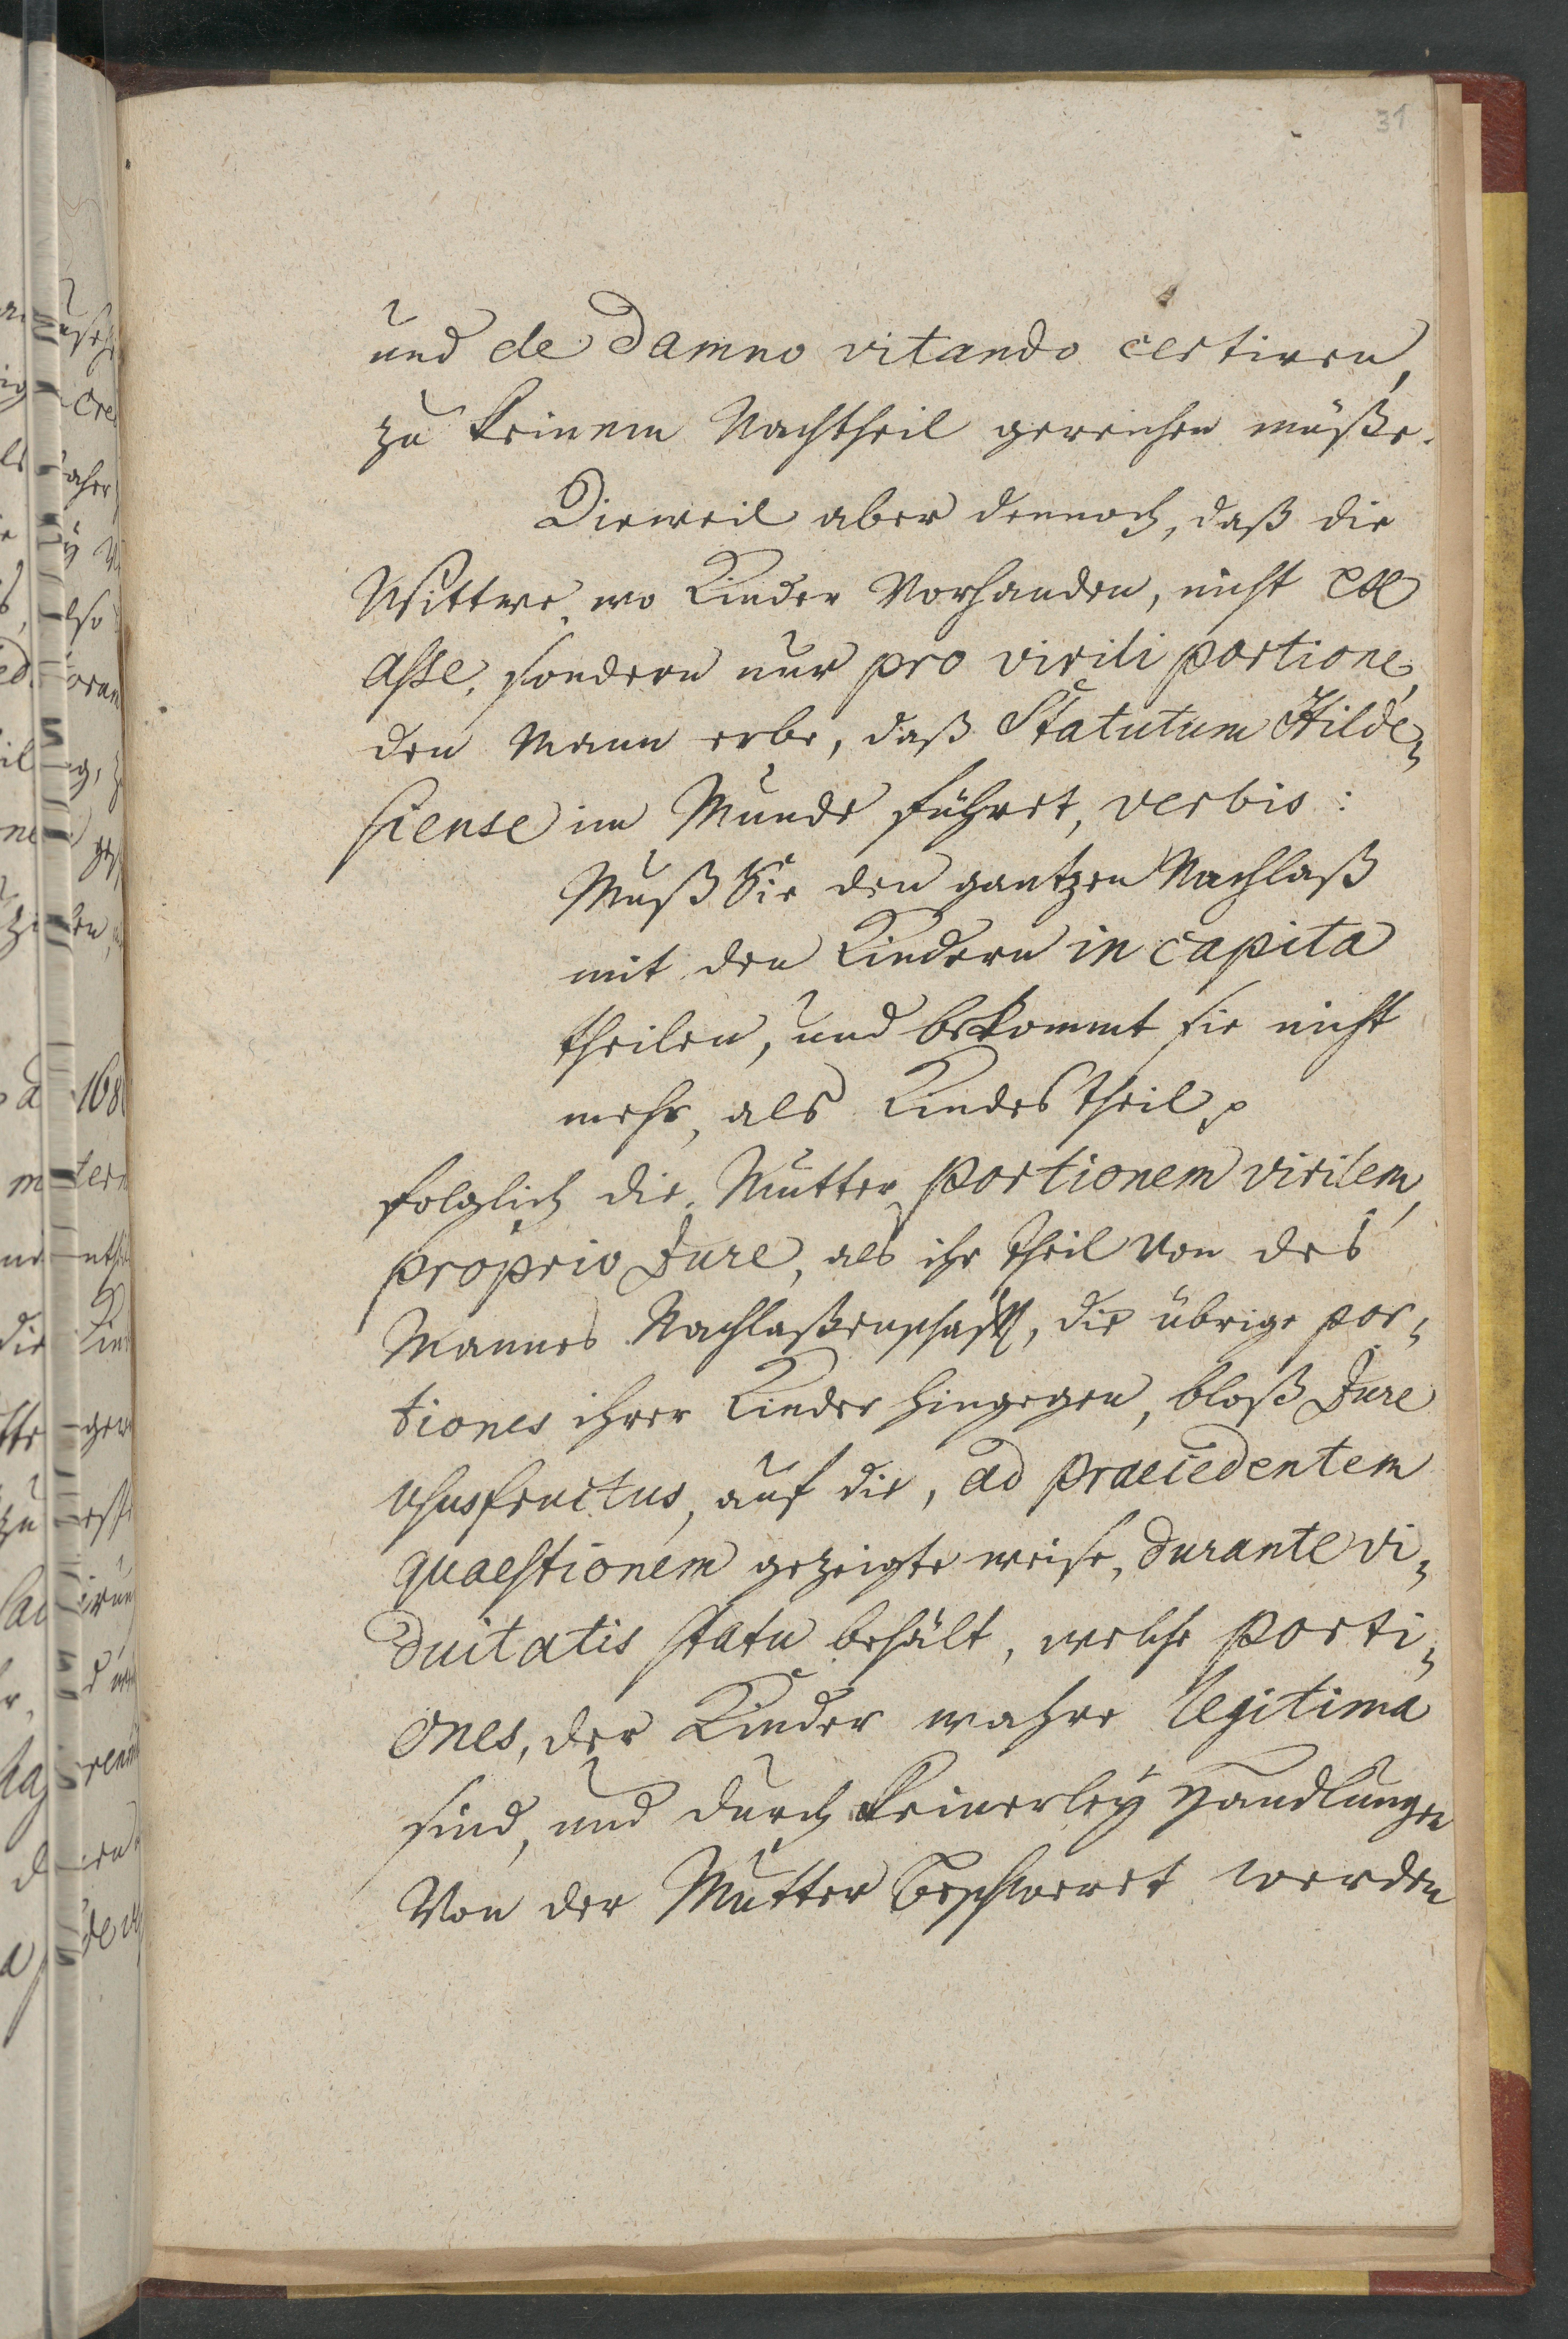 31
und de Damno vitando certiren,
zu keinem Nachtheil gereichen müße.
Dieweil aber dennoch, daß die
Wittwe, wo Kinder Vorhanden, nicht ex
asse, sondern nur pro virili portione,
den Mann erbe, daß Statutum Hilde-
siense im Munde führet, verbis:
Muß Sie den gantzen Nachlaß
mit den Kindern in capita
theilen, und bekommt sie nicht
mehr, als Kindes theil p
folglich die Mutter portionem virilem,
proprio Jure, als ihr theil Von des
Mannes Nachlaßenschafft, die übrige por-
tiones ihrer Kinder hingegen, bloß Jure
ususfructus, auf die, ad praecedentem
quaestionem gezeigte weise, durante vi-
duitatis statu behält, welche porti-
ones, der Kinder wahre legitima
sind, und durch keinerleÿ Handlungen
Von der Mutter beschweret werden